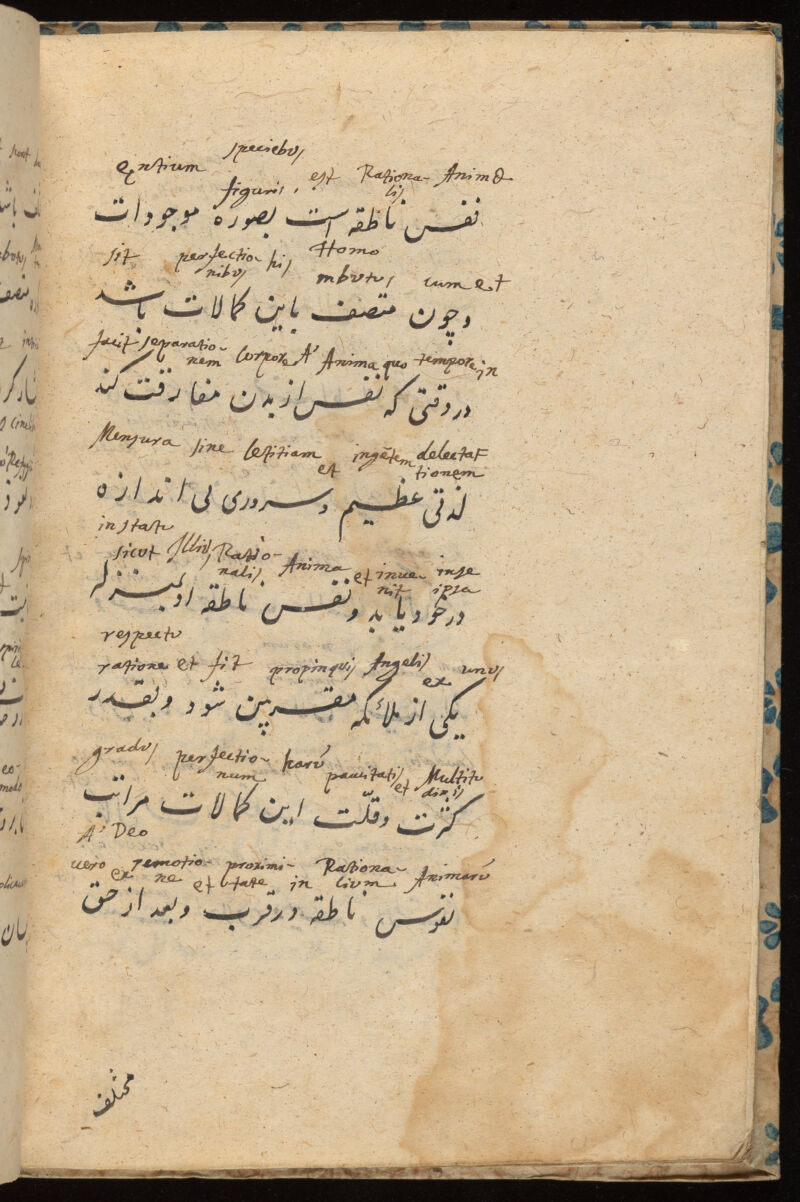 speciebus
entium figuris, est Rationa- Animæ
lis
نفس ناطقه است بصوره موجودات
sit perfectio- his Homo
nibus mbutus cum et
وچون متصف باین کمالات باشد
facit separatio-
nem Corpore A' Anima quo tempore in
در وقتی که نفس از بدن مفارقت کند
Mensura sine letitiam ingētem delecta-
et tionem
لذتی عظیم و سروری بی اندازه
in statu
sicut Illius Ratio- Anima et inue- in se
nalis nit ipsa
در خود یابد و نفس ناطقه او بمنزله
respectu
ratione et fit propinquis Angelis ex unus
یکی از ملائکه مقربین شود و بقدر
gradus perfectio- harū paucitatis et Multitu
num dinis
کثرت وقلّت این کمالات مراتب
A' Deo
uero remotio- proximi- Rationa- Animarū
ex ne et tate in lium
نفوس ناطقه در قرب وبعد از حق
مختلف